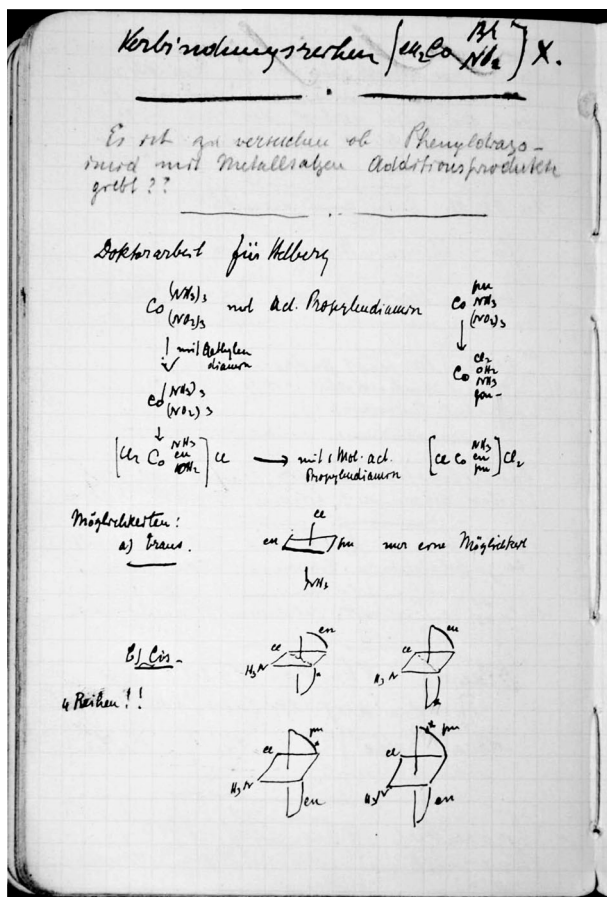 Verbindungsreihen [en₂Co Br NO₂] X.
Es ist zu versuchen ob Phenyldiazo-
imid mit Metallsalzen Additionsprodukte
giebt??
Doktorarbeit für Hedberg
Co (NH₃)₃ (NO₂)₃ mit Act. Propylendiamin Co pn NH₃ (NO₂)₃
↓ mit Aethylen
diamin
Co (NH₃)₃ (NO₂)₃
Co Cl₂ OH₂ NH₃ pn
[Cl₂ Co NH₃ en OH₂] Cl → mit 1 Mol. act.
Propylendiamin [Cl Co NH₃ en pn] Cl₂
Möglichkeiten:
a) trans.
Cl
en pn nur eine Möglichkeit
NH₃
b) Cis-
en en
Cl Cl
H₃N H₃N
4 Reihen!!
pn pn
Cl Cl
H₃N H₃N
en en